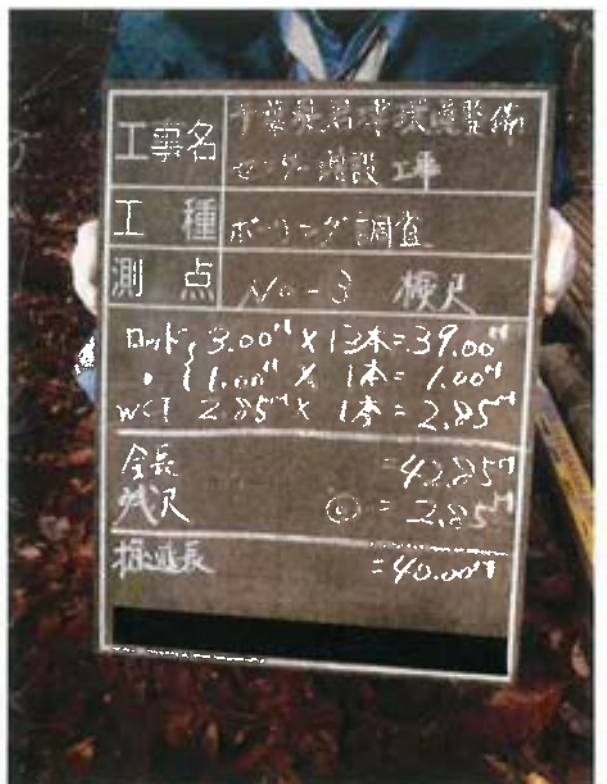 工事名 千葉県君津環境整備
センター増設工事
工種 ボーリング調査
測点 No-3 検尺
ロッド 3.00m × 13本 = 39.00m
〃 1.00m × 1本 = 1.00m
WCT 2.85m × 1本 = 2.85m
全長 = 42.85m
残尺 = 2.85m
掘進長 = 40.00m